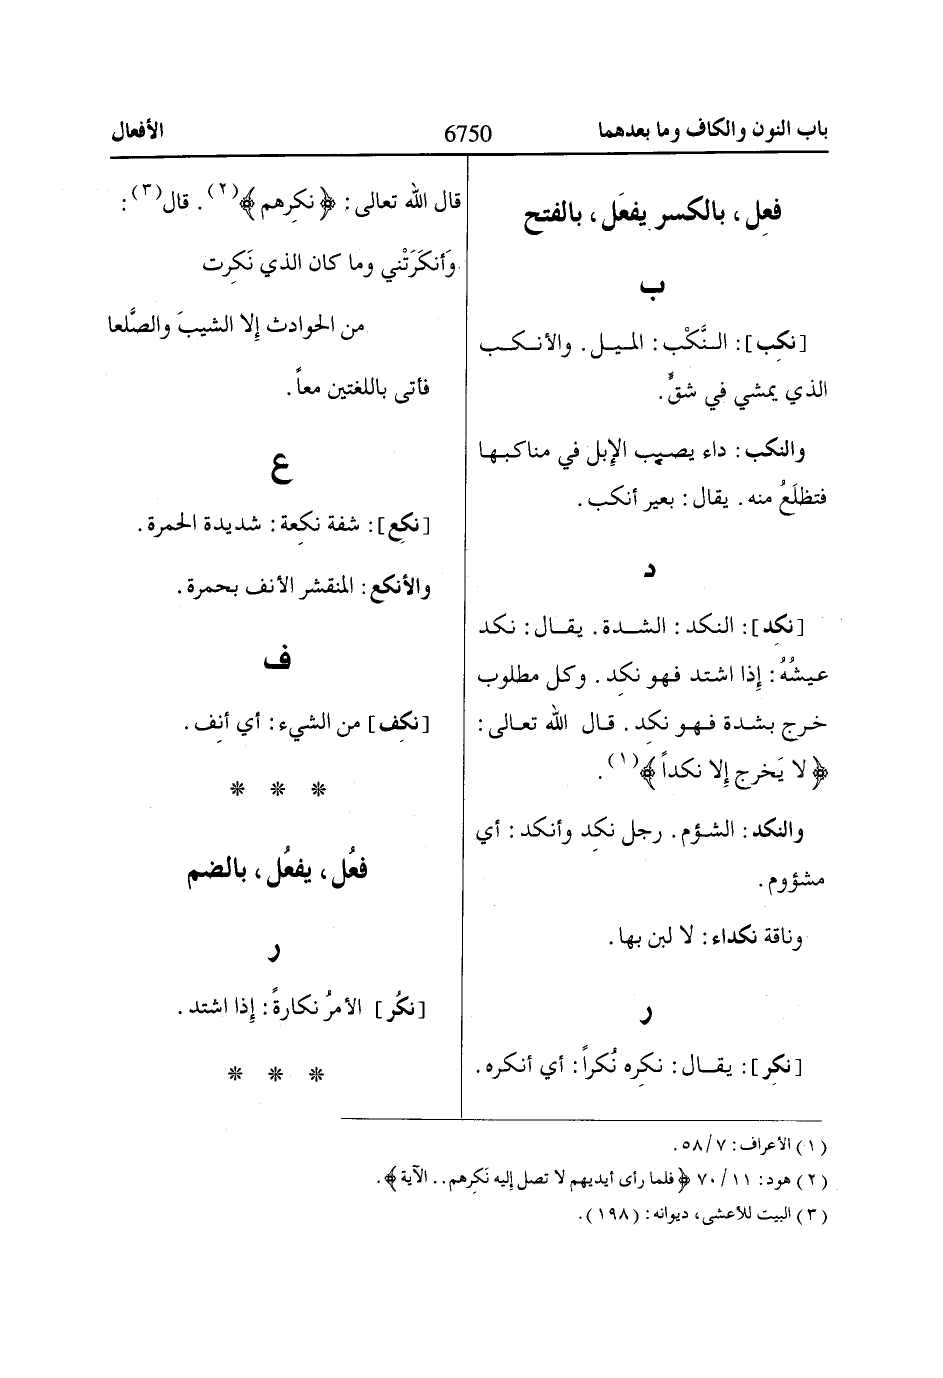 باب النون والكاف وما بعدهما 6750 الأفعال
فعِل، بالكسر يفعَل، بالفتح
ب
[نكِب]: النَّكْب: الميل. والأنكب
الذي يمشي في شقٍّ.
والنكب: داء يصيب الإبل في مناكبها
فتظلَعُ منه. يقال: بعير أنكب.
د
[نكِد]: النكد: الشدة. يقال: نكد
عيشُهُ: إذا اشتد فهو نكِد. وكل مطلوب
خرج بشدة فهو نكِد. قال الله تعالى:
﴿لا يَخرج إلا نكداً﴾(١).
والنكد: الشؤم. رجل نكِد وأنكد: أي
مشؤوم.
وناقة نكداء: لا لبن بها.
ر
[نكِر]: يقال: نكِره نُكراً: أي أنكره.
قال الله تعالى: ﴿نكِرهم﴾(٢). قال(٣):
وَأنكَرَتْني وما كان الذي نَكِرت
من الحوادث إلا الشيبَ والصَّلعا
فأتى باللغتين معاً.
ع
[نكِع]: شفة نكِعة: شديدة الحمرة.
والأنكع: المنقشر الأنف بحمرة.
ف
[نكِف] من الشيء: أي أنِف.
* * *
فعُل، يفعُل، بالضم
ر
[نكُر] الأمرُ نكارةً: إذا اشتد.
* * *
(١) الأعراف: ٧/ ٥٨.
(٢) هود: ١١/ ٧٠ ﴿فلما رأى أيديهم لا تصل إليه نَكِرهم.. الآية﴾.
(٣) البيت للأعشى، ديوانه: (١٩٨).